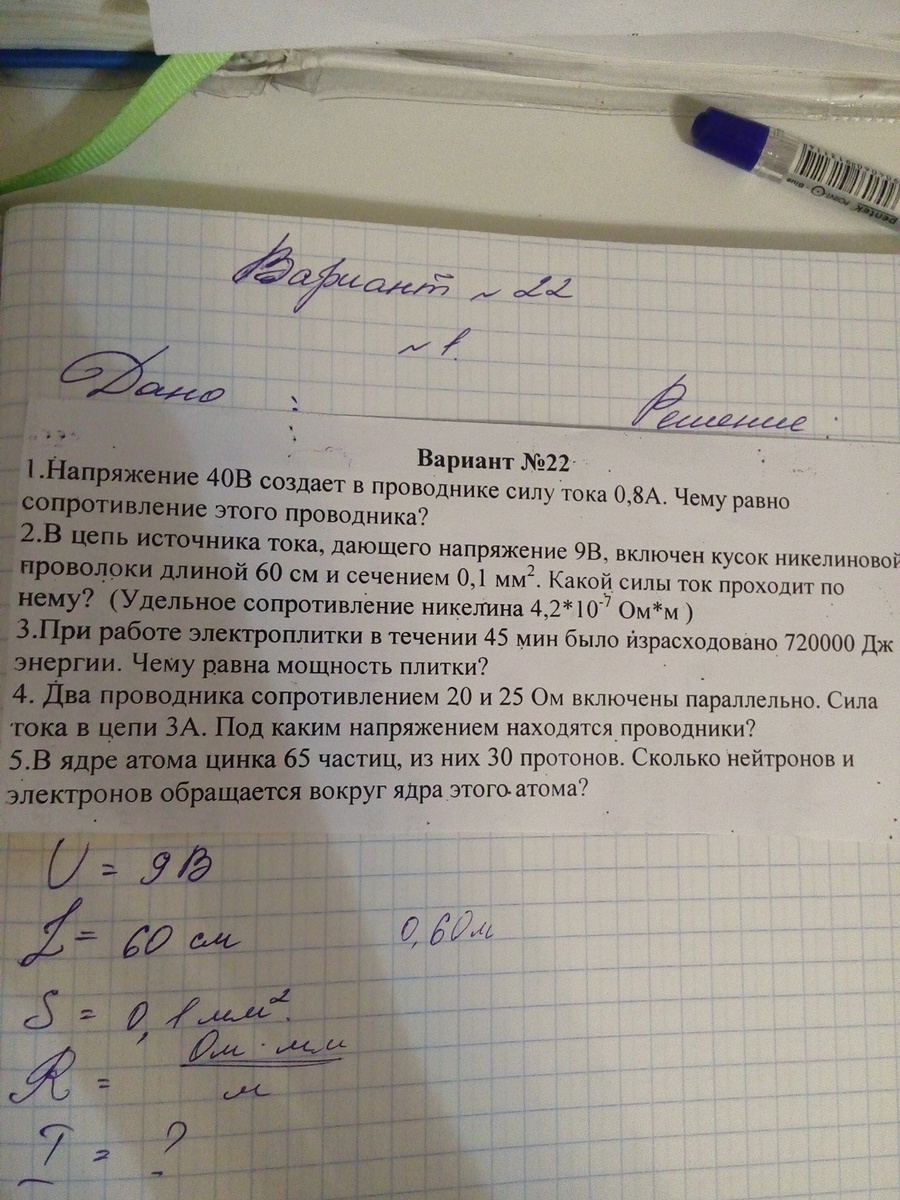 pentek POINT Blue
Вариант ~ 22
~ 1.
Дано :
Решение :
Вариант №22
1.Напряжение 40В создает в проводнике силу тока 0,8А. Чему равно
сопротивление этого проводника?
2.В цепь источника тока, дающего напряжение 9В, включен кусок никелиновой
проволоки длиной 60 см и сечением 0,1 мм². Какой силы ток проходит по
нему? (Удельное сопротивление никелина 4,2*10⁻⁷ Ом*м )
3.При работе электроплитки в течении 45 мин было израсходовано 720000 Дж
энергии. Чему равна мощность плитки?
4. Два проводника сопротивлением 20 и 25 Ом включены параллельно. Сила
тока в цепи 3А. Под каким напряжением находятся проводники?
5.В ядре атома цинка 65 частиц, из них 30 протонов. Сколько нейтронов и
электронов обращается вокруг ядра этого атома?
U = 9В
L = 60 см 0,60м
S = 0,1 мм².
R = Ом · мм / м
I = ?